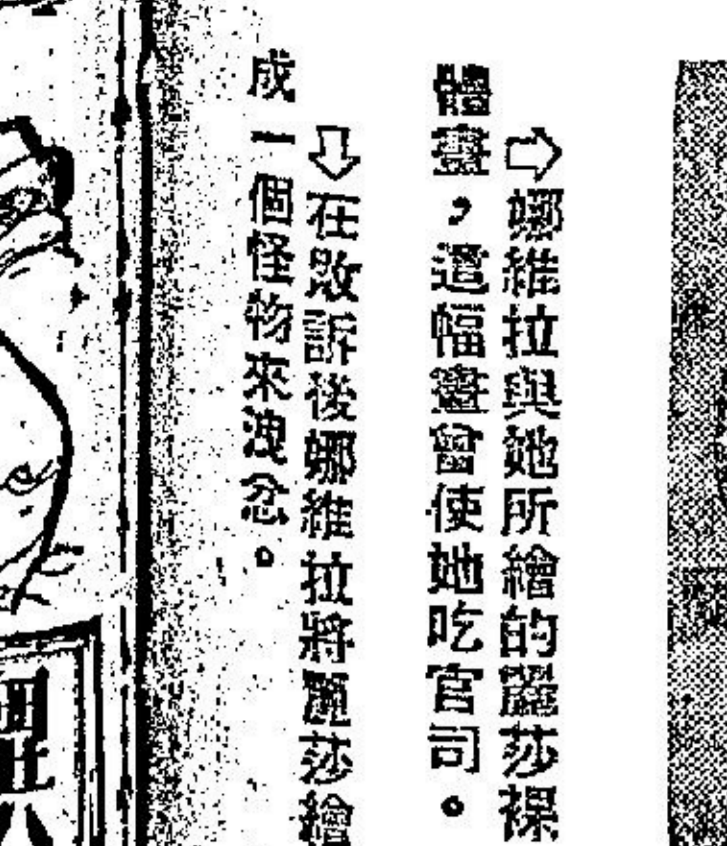 ⇨娜維拉與她所繪的麗莎裸
體畫，這幅畫曾使她吃官司。
⇩在敗訴後娜維拉將麗莎繪
成一個怪物來洩忿。